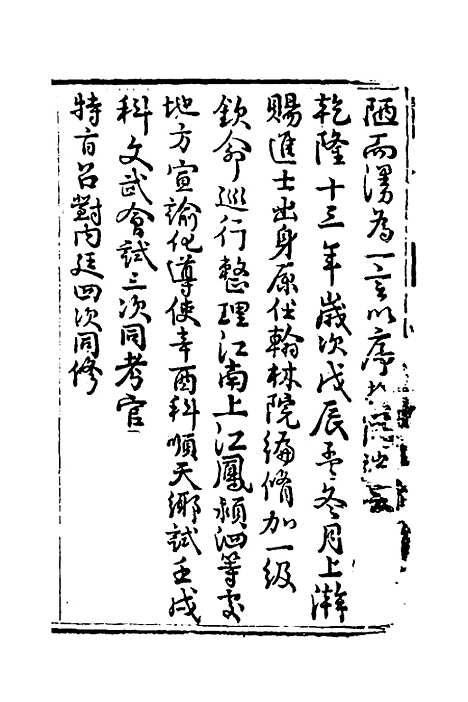 陋而漫為一言以序
乾隆十三年歲次戊辰孟冬月上澣
賜進士出身原任翰林院編脩加一級
欽命巡行整理江南上江鳳潁泗等處
地方宣諭化導使辛酉科順天鄉試壬戌
科文武會試三次同考官
特旨召對內廷四次同修